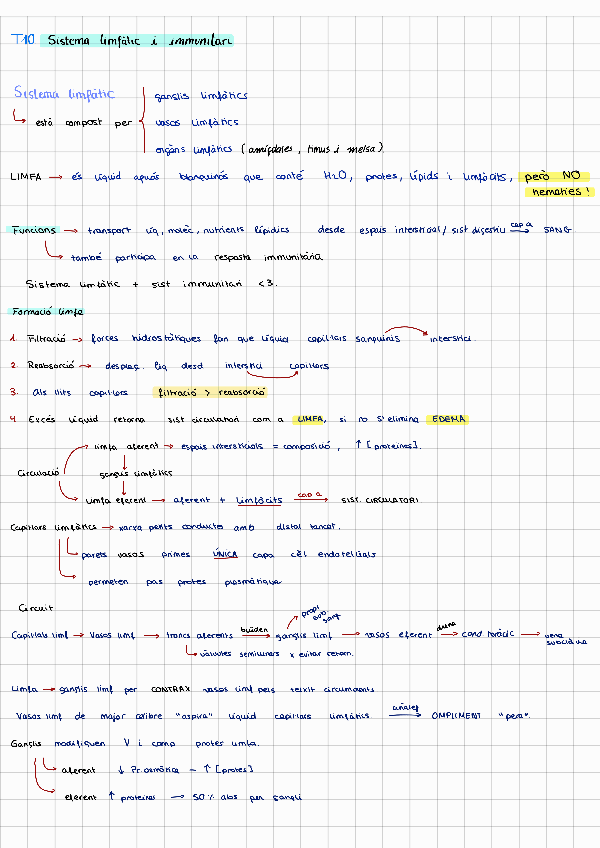 T10 Sistema limfàtic i immunitari
Sistema limfàtic
ganglis limfàtics
↳ està compost per
vasos limfàtics
òrgans limfàtics (amígdales, timus i melsa)
LIMFA → és líquid aquós blanquinós que conté H2O, protes, lípids i limfòcits, però NO
hematies!
Funcions → transport líq, molèc, nutrients lipídics desde espais intersticial / sist digestiu cap a → SANG
↳ també participa en la resposta immunitària
Sistema limfàtic + sist immunitari <3.
Formació limfa
1. Filtració → forces hidrostàtiques fan que líquid capil·lars sanguinis interstici.
2. Reabsorció → desplaç. líq desd interstici capil·lars
3. Als llits capil·lars filtració > reabsorció
4 Excés líquid retorna sist circulatori com a LIMFA, si no s'elimina EDEMA
limfa aferent → espais intersticials = composició, ↑ [proteïnes].
Circulació ganglis limfàtics
limfa eferent → aferent + limfòcits cap a → SIST. CIRCULATORI
Capil·lars limfàtics → xarxa petits conductes amb distal tancat.
↳ parets vasos primes ÚNICA capa cèl endotelials
↳ permeten pas protes plasmàtiques
Circuit
propi
sang
Capil·lars limf → Vasos limf → troncs aferents buiden → ganglis limf → vasos eferent → cond toràcic → vena
subclàvia
↳ vàlvules semilunars x evitar retorn.
Limfa → ganglis limf per CONTRAX vasos limf pels teixit circumdants
Vasos limf de major calibre "aspira" líquid capil·lars limfàtics → OMPLIMENT "pera".
Ganglis modifiquen V i comp protes limfa.
↳ aferent ↓ Pr. osmòtica - ↑ [protes]
↳ eferent ↑ proteïnes → 50% abs per gangli